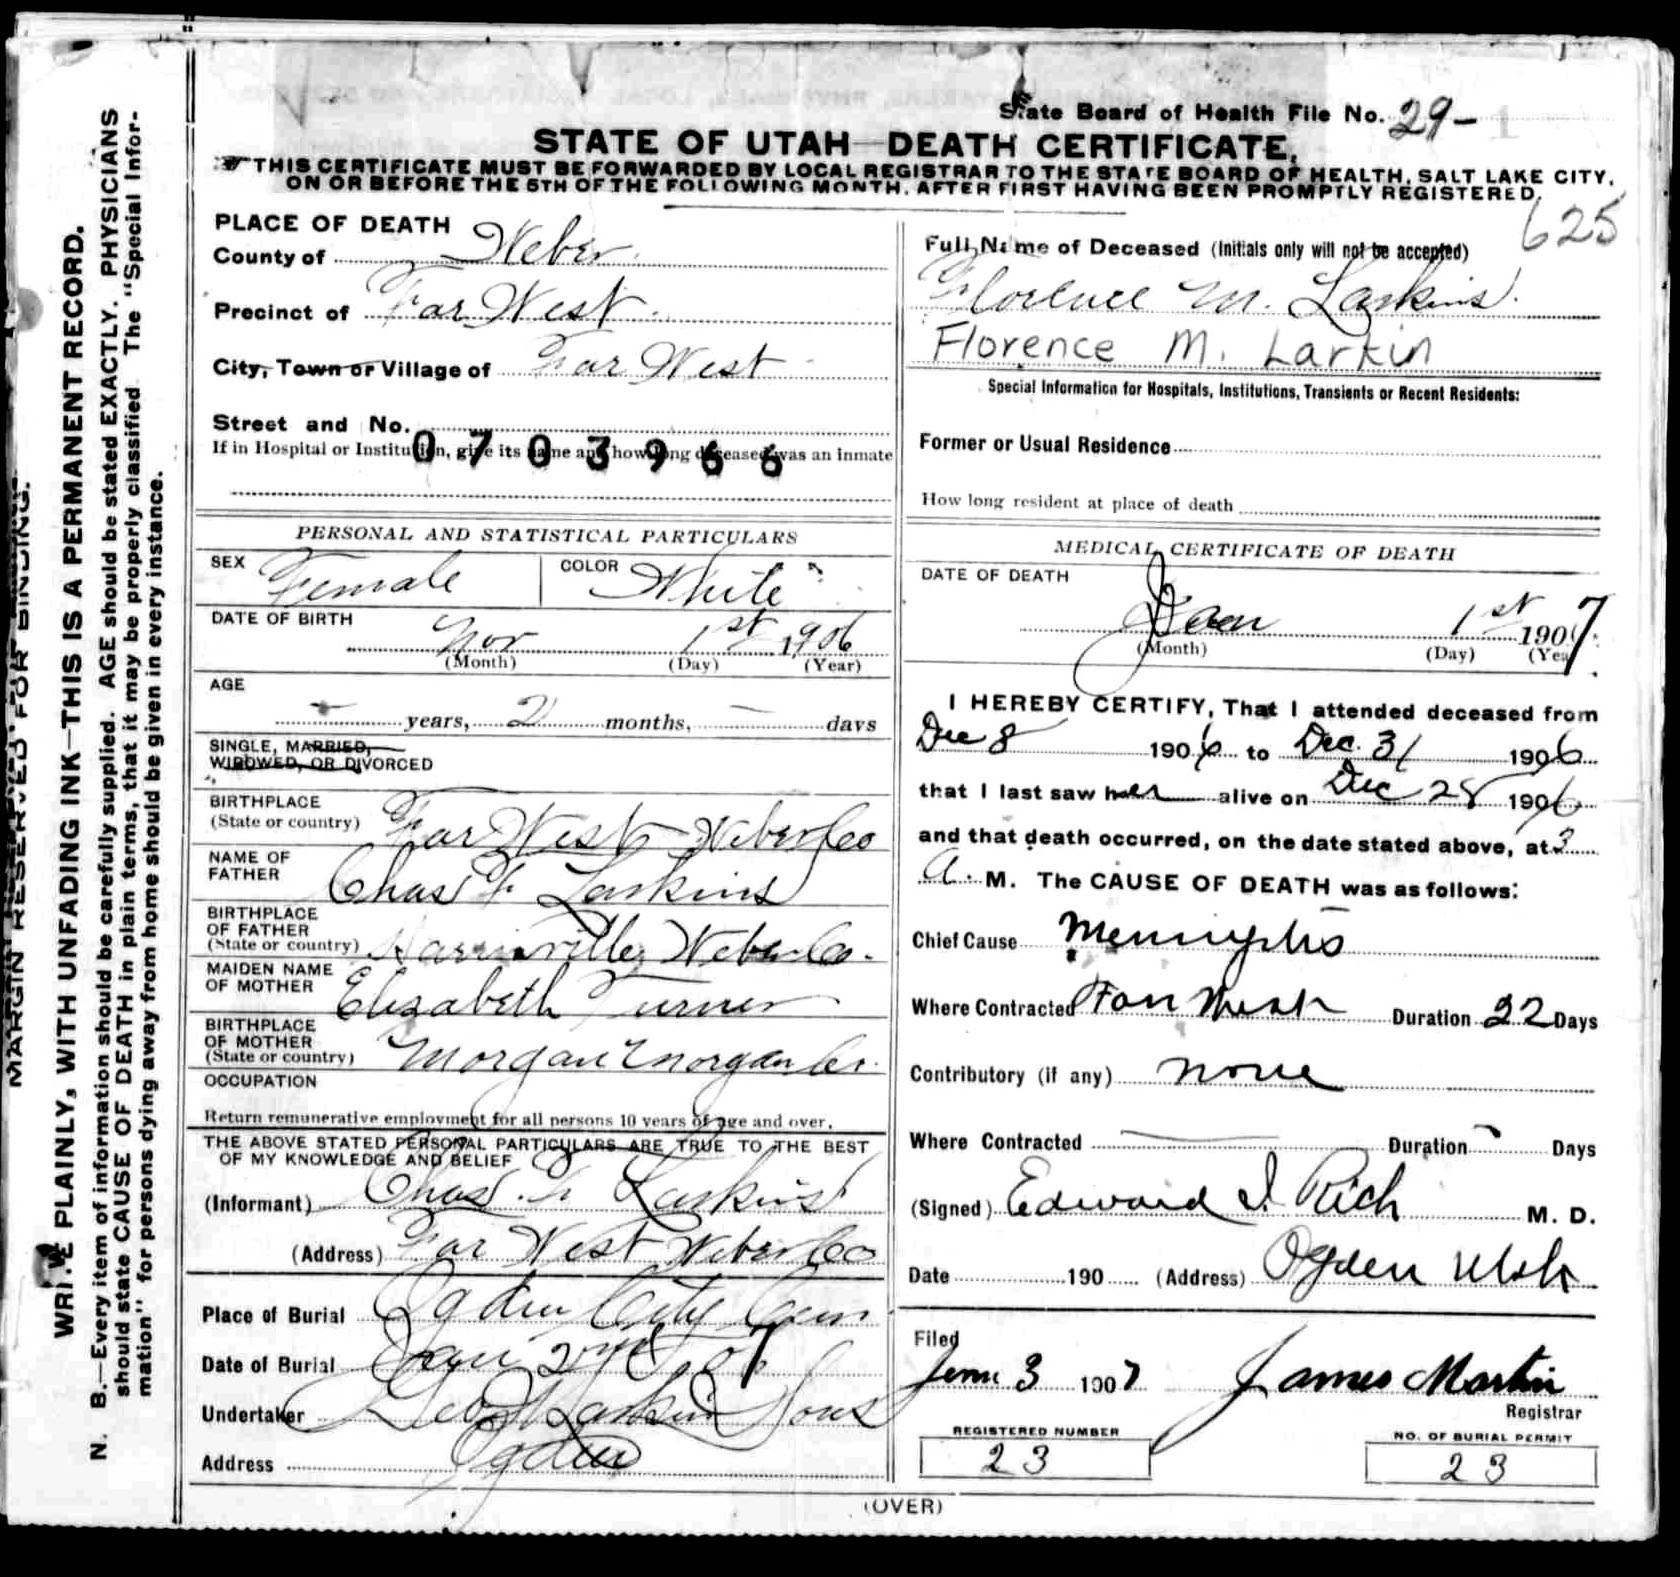 State Board of Health File No. 29-
STATE OF UTAH—DEATH CERTIFICATE.
THIS CERTIFICATE MUST BE FORWARDED BY LOCAL REGISTRAR TO THE STATE BOARD OF HEALTH, SALT LAKE CITY,
ON OR BEFORE THE 5TH OF THE FOLLOWING MONTH, AFTER FIRST HAVING BEEN PROMPTLY REGISTERED.
625
MARGIN RESERVED FOR BINDING.
WRITE PLAINLY, WITH UNFADING INK—THIS IS A PERMANENT RECORD.
N. B.—Every item of information should be carefully supplied. AGE should be stated EXACTLY. PHYSICIANS
should state CAUSE OF DEATH in plain terms, that it may be properly classified. The "Special Infor-
mation" for persons dying away from home should be given in every instance.
PLACE OF DEATH
County of Weber
Precinct of Far West
City, Town or Village of Far West
Street and No.
0703966
If in Hospital or Institution, give its name and how long deceased was an inmate
PERSONAL AND STATISTICAL PARTICULARS
SEX Female COLOR White
DATE OF BIRTH Nov 1st 1906
(Month) (Day) (Year)
AGE
— years, 2 months, — days
SINGLE, MARRIED,
WIDOWED, OR DIVORCED
BIRTHPLACE
(State or country) Far West Weber Co
NAME OF
FATHER Chas F Larkins
BIRTHPLACE
OF FATHER
(State or country) Harrisville, Weber Co.
MAIDEN NAME
OF MOTHER Elizabeth Turner
BIRTHPLACE
OF MOTHER
(State or country) Morgan Morgan Co.
OCCUPATION
Return remunerative employment for all persons 10 years of age and over.
THE ABOVE STATED PERSONAL PARTICULARS ARE TRUE TO THE BEST
OF MY KNOWLEDGE AND BELIEF
(Informant) Chas. F. Larkins
(Address) Far West Weber Co
Place of Burial Ogden City Cem
Date of Burial Jan 2nd 07
Undertaker Geo Larkin Sons
Address Ogden
Full Name of Deceased (Initials only will not be accepted)
Florence M. Larkins.
Florence M. Larkin
Special Information for Hospitals, Institutions, Transients or Recent Residents:
Former or Usual Residence
How long resident at place of death
MEDICAL CERTIFICATE OF DEATH
DATE OF DEATH
Jan 1st 1907
(Month) (Day) (Year)
I HEREBY CERTIFY, That I attended deceased from
Dec 8 1906 to Dec. 31 1906
that I last saw her alive on Dec 28 1906
and that death occurred, on the date stated above, at 3
A. M. The CAUSE OF DEATH was as follows:
Chief Cause
Where Contracted Far West Duration 22 Days
Contributory (if any) none
Where Contracted — Duration — Days
(Signed) Edward I. Rich M. D.
Date 190 (Address) Ogden Utah
Filed
Jan 3 1907 James Martin
Registrar
REGISTERED NUMBER
23
NO. OF BURIAL PERMIT
23
(OVER)